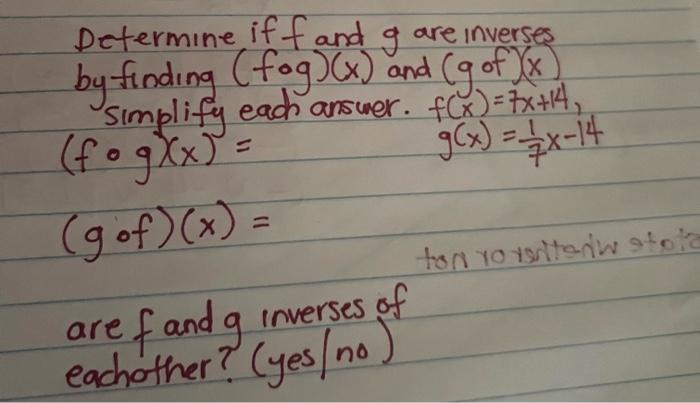 Determine if f and g are inverses
by finding (fog)(x) and (gof)(x)
simplify each answer. f(x)=7x+14,
(fog)(x) = g(x) = 1/7x-14
(gof)(x) =
state whether or not
are f and g inverses of
eachother? (yes/no)